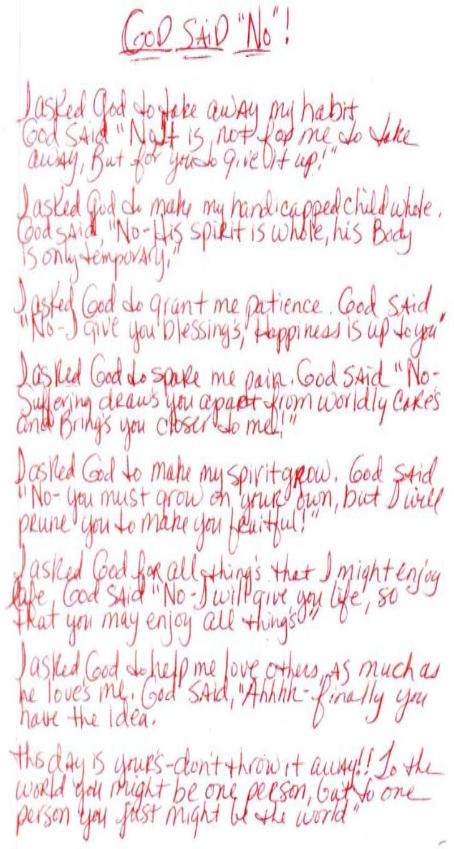 GOD SAID "No"!
I asked God to take away my habit
God SAID "No It is not for me to take
away, But for you to give it up!"
I asked God to make my handicapped child whole.
God SAID, "No-His spirit is whole, his Body
is only temporary,"
I asked God to grant me patience. God SAID
"No-I give you blessings, Happiness is up to you"
I asked God to spare me pain. God SAID "No-
Suffering draws you apart from worldly cares
and Bring's you closer to me!"
I asked God to make my spirit grow. God SAID
"No-you must grow on your own, but I will
prune you to make you fruitful!"
I asked God for all thing's that I might enjoy
life. God SAID "No-I will give you life, so
that you may enjoy all thing's"
I asked God to help me love others, As much as
he love's me. God SAID, "Ahhhh-finally you
have the idea.
this day is your's-don't throw it away!! To the
world you might be one person, but to one
person you just might be the world"